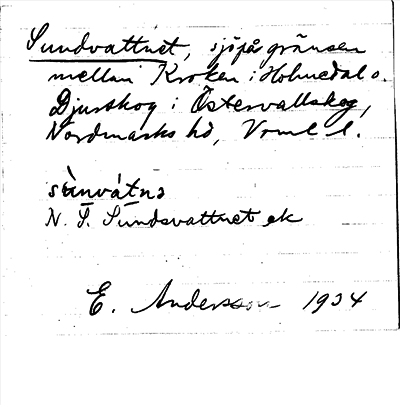 Sundvattnet, sjö på gränsen
mellan Kroken i Holmedal o.
Djurskog i Östervallskog,
Nordmarks hd, Vrml l.
sùnvátnə
N. F. Sundsvattnet ek
E. Andersson 1934